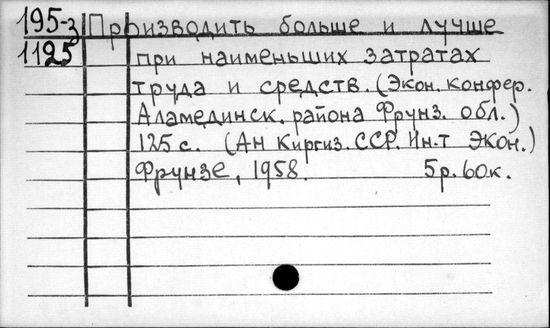 195-з Производить больше и лучше
1125 при наименьших затратах
труда и средств. (Экон. конфер.
Аламединск. района Фрунз. обл.)
125 с. (Ан Киргиз. ССР. Ин-т Экон.)
Фрунзе, 1958. 5р. 60к.